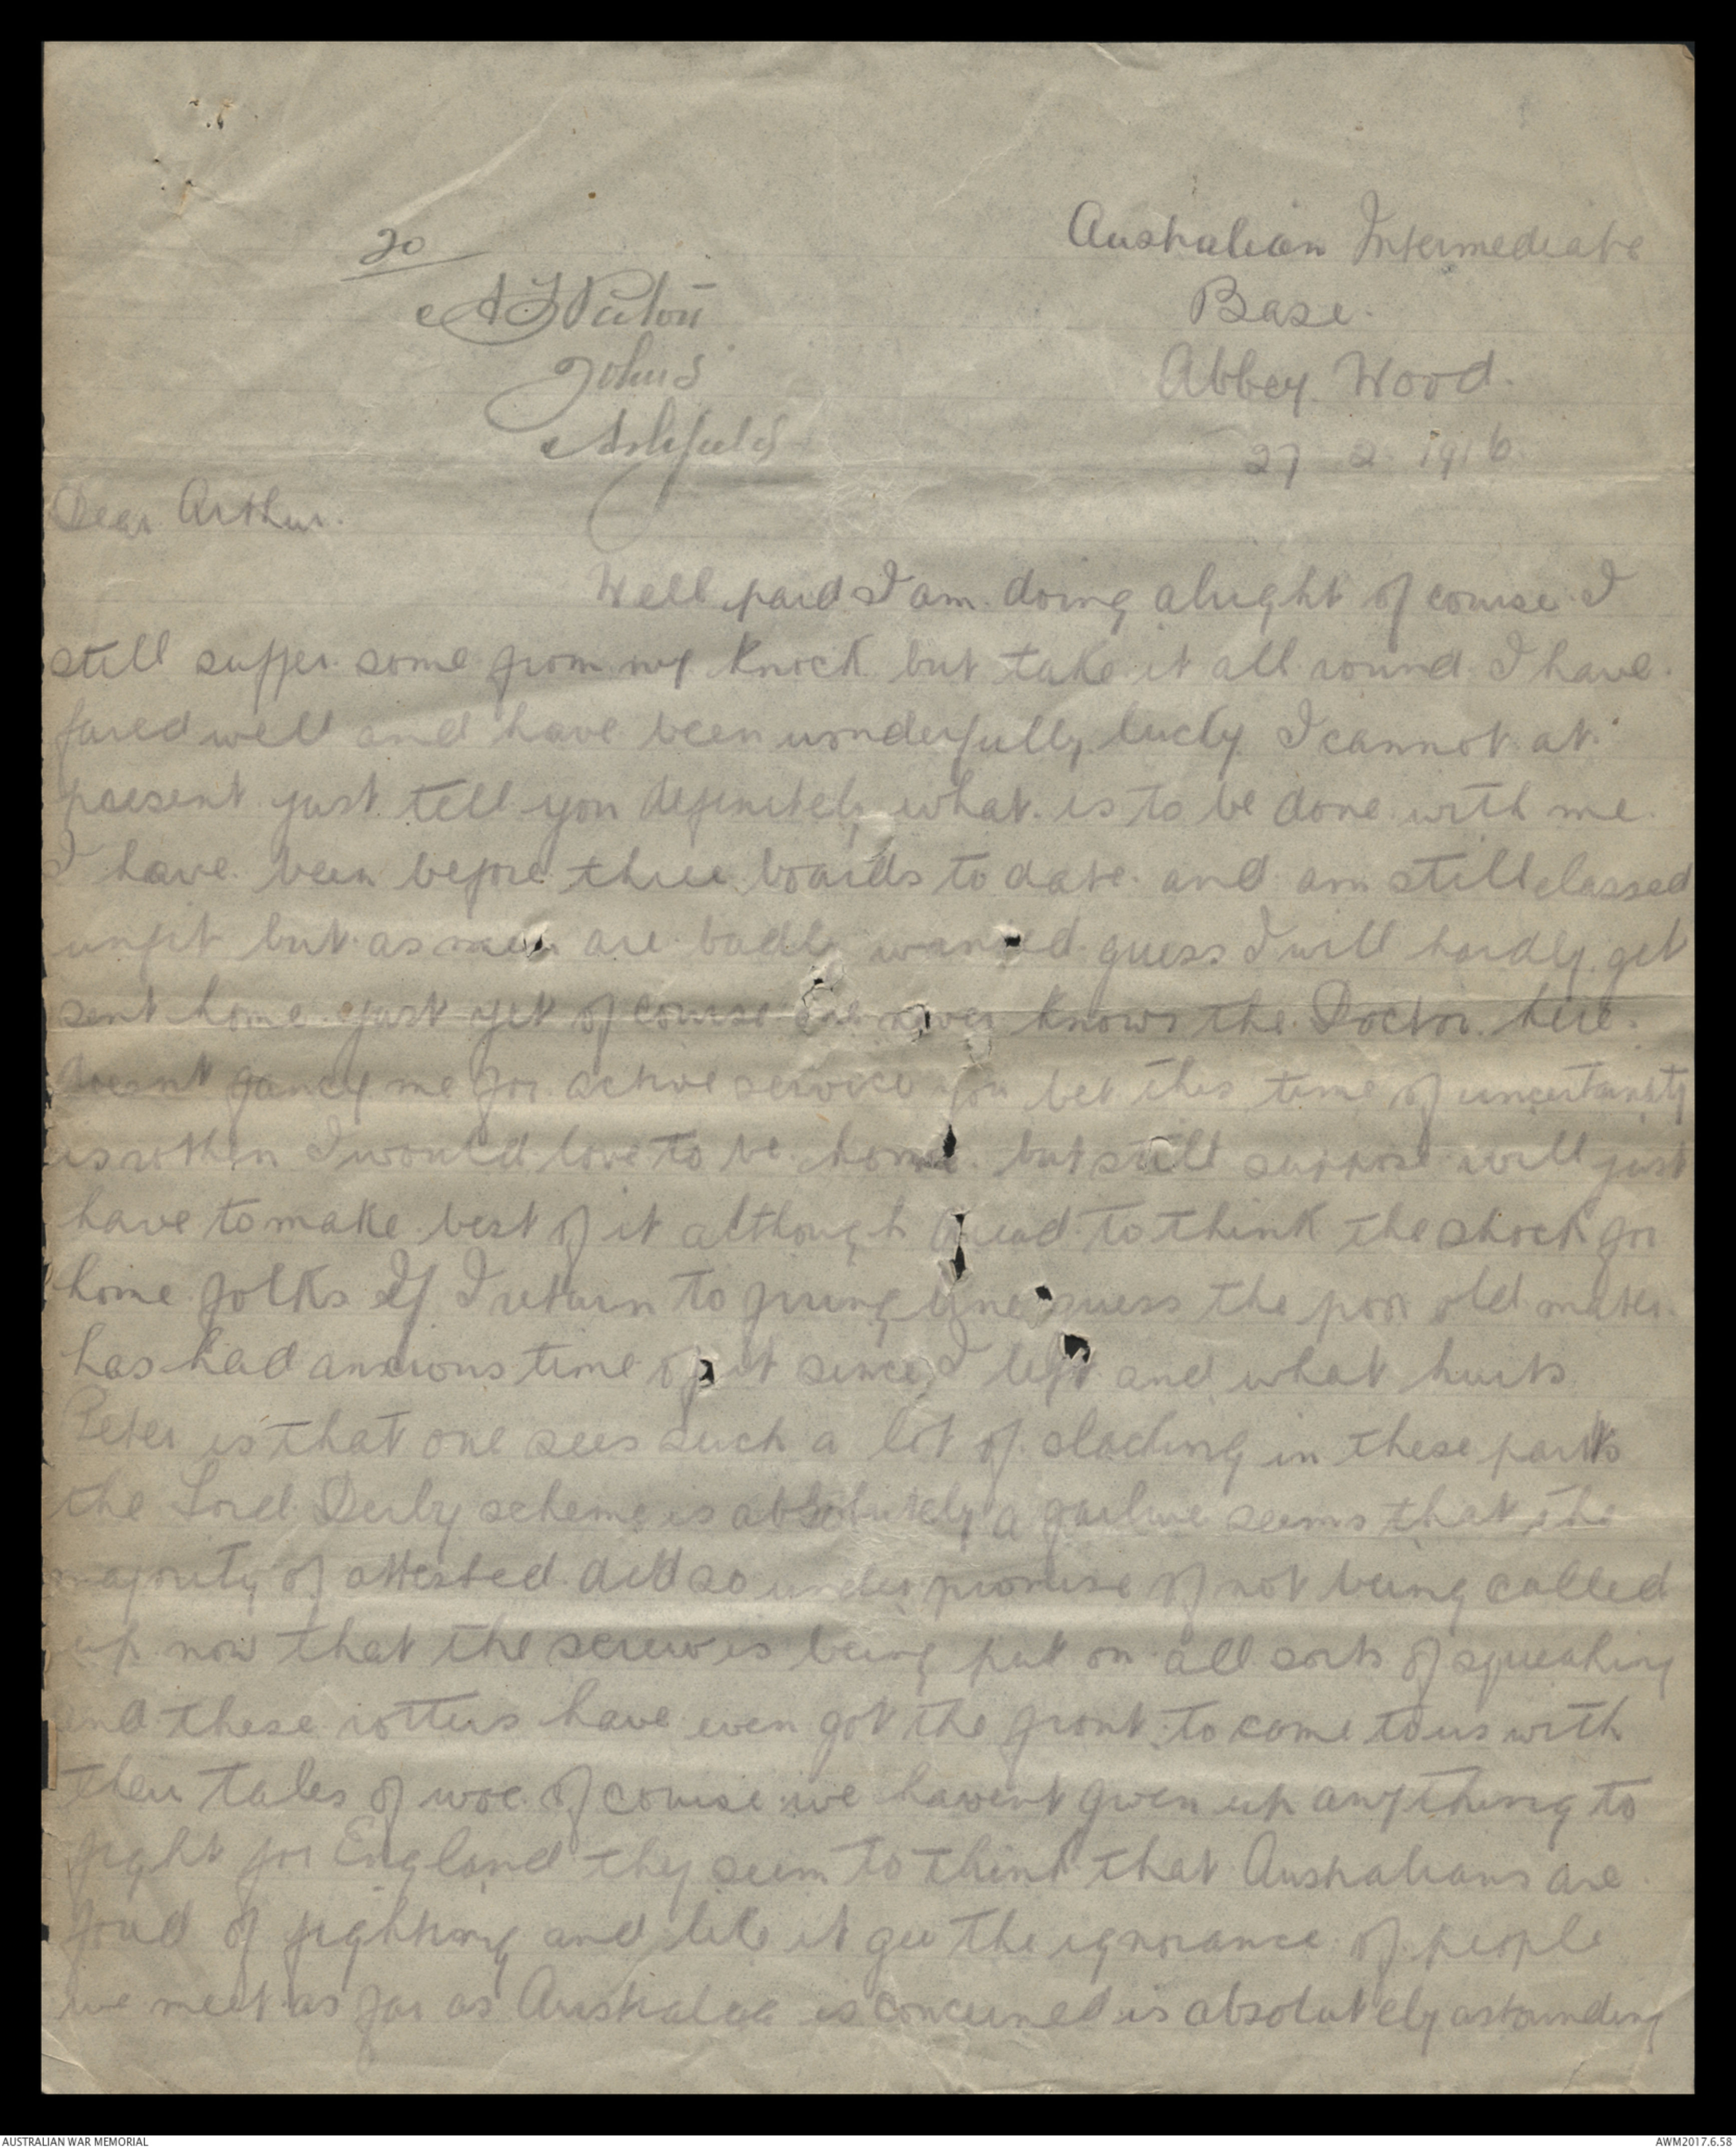 20
Australian Intermediate
Base.
Johns
Abbey Wood.
Ashfield
27 2 1916.
Dear Arthur.
Well pard I am doing alright of course I
still suffer some from my knock but take it all round I have
fared well and have been wonderfully lucky I cannot at
present just tell you definitely what is to be done with me.
I have been before three boards to date and am still classed
unfit but as men are badly wanted guess I will hardly get
sent home just yet of course one never knows the Doctor here.
doesnt fancy me for active service you bet this time of uncertainty
is rotten I would love to be home but still suppose will just
have to make best of it although dread to think the shock for
home folks If I return to firing line guess the poor old mater.
has had anxious time of it since I left and what hurts
Peter is that one sees such a lot of slacking in these parts
the Lord Derby scheme is absolutely a failure seems that the
majority of attested did so under promise of not being called
up now that the screw is being put on all sorts of squeaking
and these rotters have even got the front to come to us with
their tales of woe of course we havent given up anything to
fight for England they seem to think that Australians are
foud of fighting and like it gee the ignorance of people
we meet as far as Australia is concerned is absolutely astounding
AUSTRALIAN WAR MEMORIAL
AWM2017.6.58